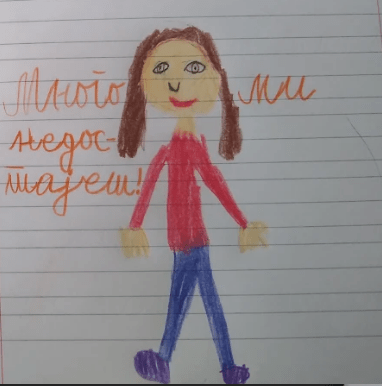 Много ми
недос-
тајеш!